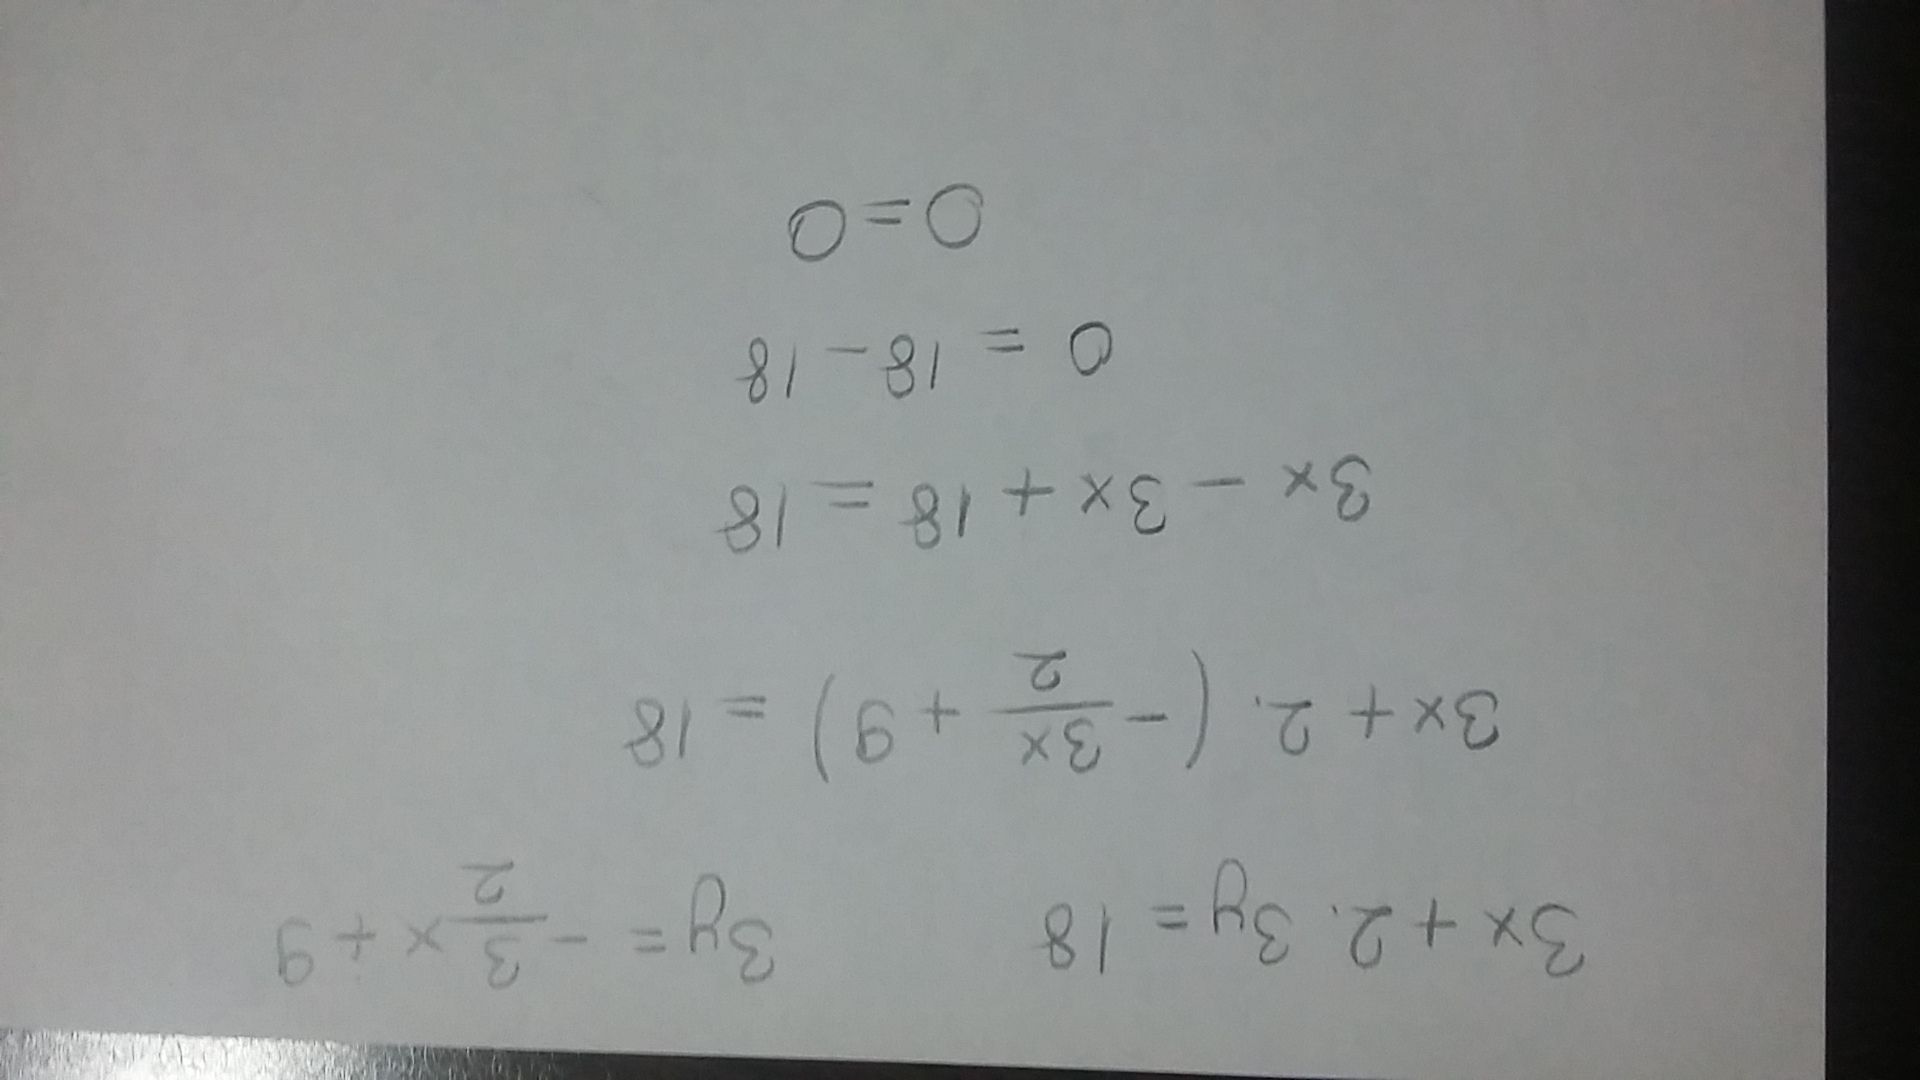 3x + 2. 3y = 18    3y = - 3/2 x + 9
3x + 2. (- 3x/2 + 9) = 18
3x - 3x + 18 = 18
0 = 18 - 18
0 = 0